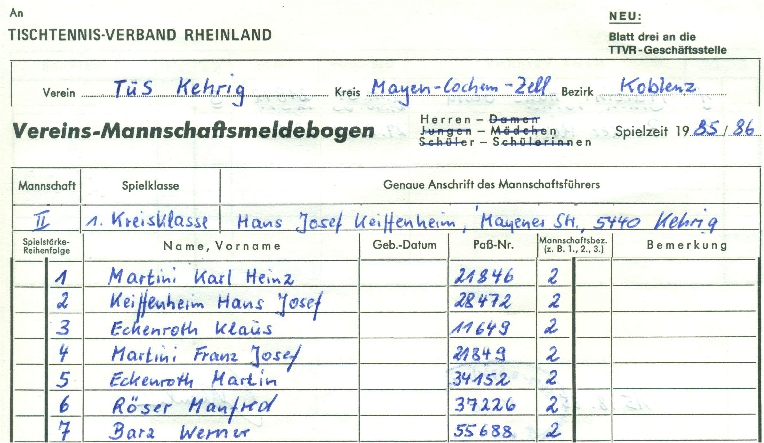 An
TISCHTENNIS-VERBAND RHEINLAND
NEU:
Blatt drei an die
TTVR-Geschäftsstelle
Verein TüS Kehrig Kreis Mayen-Cochem-Zell Bezirk Koblenz
Vereins-Mannschaftsmeldebogen
Herren – Damen
Jungen – Mädchen
Schüler – Schülerinnen
Spielzeit 1985/86
Mannschaft Spielklasse Genaue Anschrift des Mannschaftsführers
II 1. Kreisklasse Hans Josef Keiffenheim, Mayener Str., 5440 Kehrig
Spielstärke-Reihenfolge Name, Vorname Geb.-Datum Paß-Nr. Mannschaftsbez. (z. B. 1., 2., 3.) Bemerkung
1 Martini Karl Heinz 21846 2
2 Keiffenheim Hans Josef 28472 2
3 Eckenroth Klaus 11649 2
4 Martini Franz Josef 21849 2
5 Eckenroth Martin 34152 2
6 Röser Manfred 37226 2
7 Barz Werner 55688 2